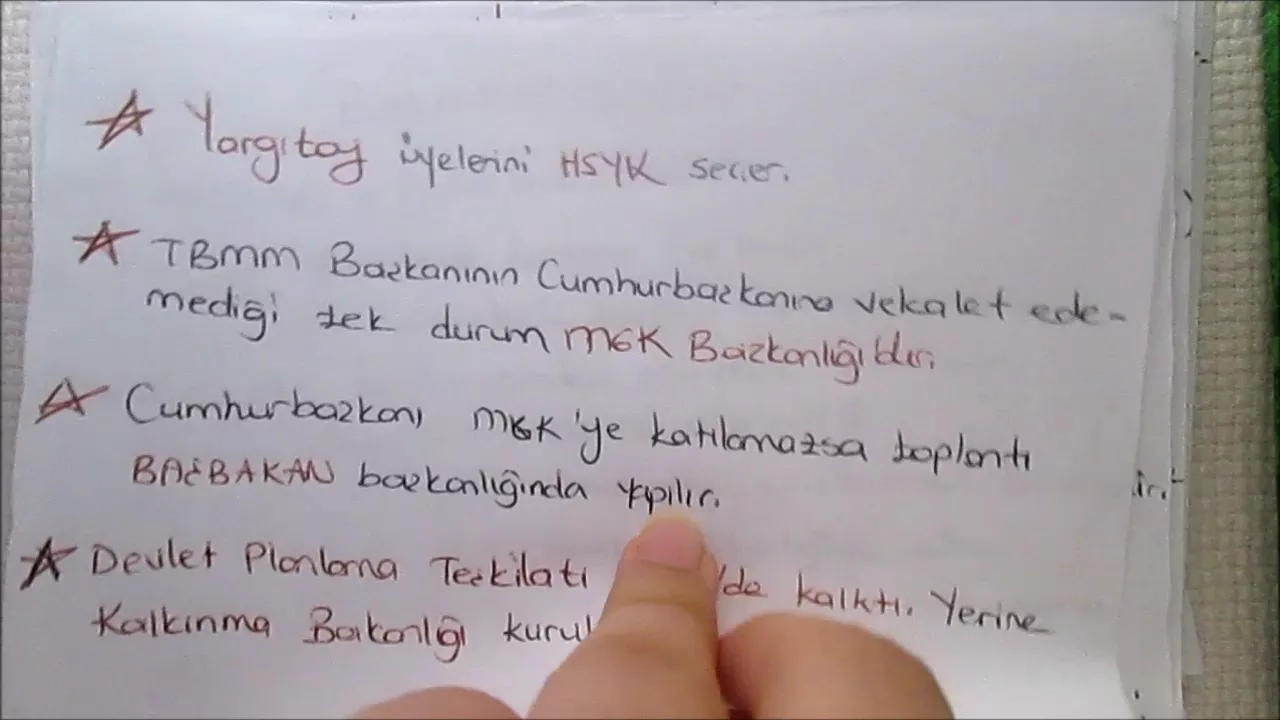 Yargıtay üyelerini HSYK seçer.
TBMM Başkanının Cumhurbaşkanına vekalet ede-
mediği tek durum MGK Başkanlığıdır.
Cumhurbaşkanı MGK'ye katılamazsa toplantı
BAŞBAKAN başkanlığında yapılır.
Devlet Planlama Teşkilatı 'de kalktı. Yerine
Kalkınma Bakanlığı kurul
ir.